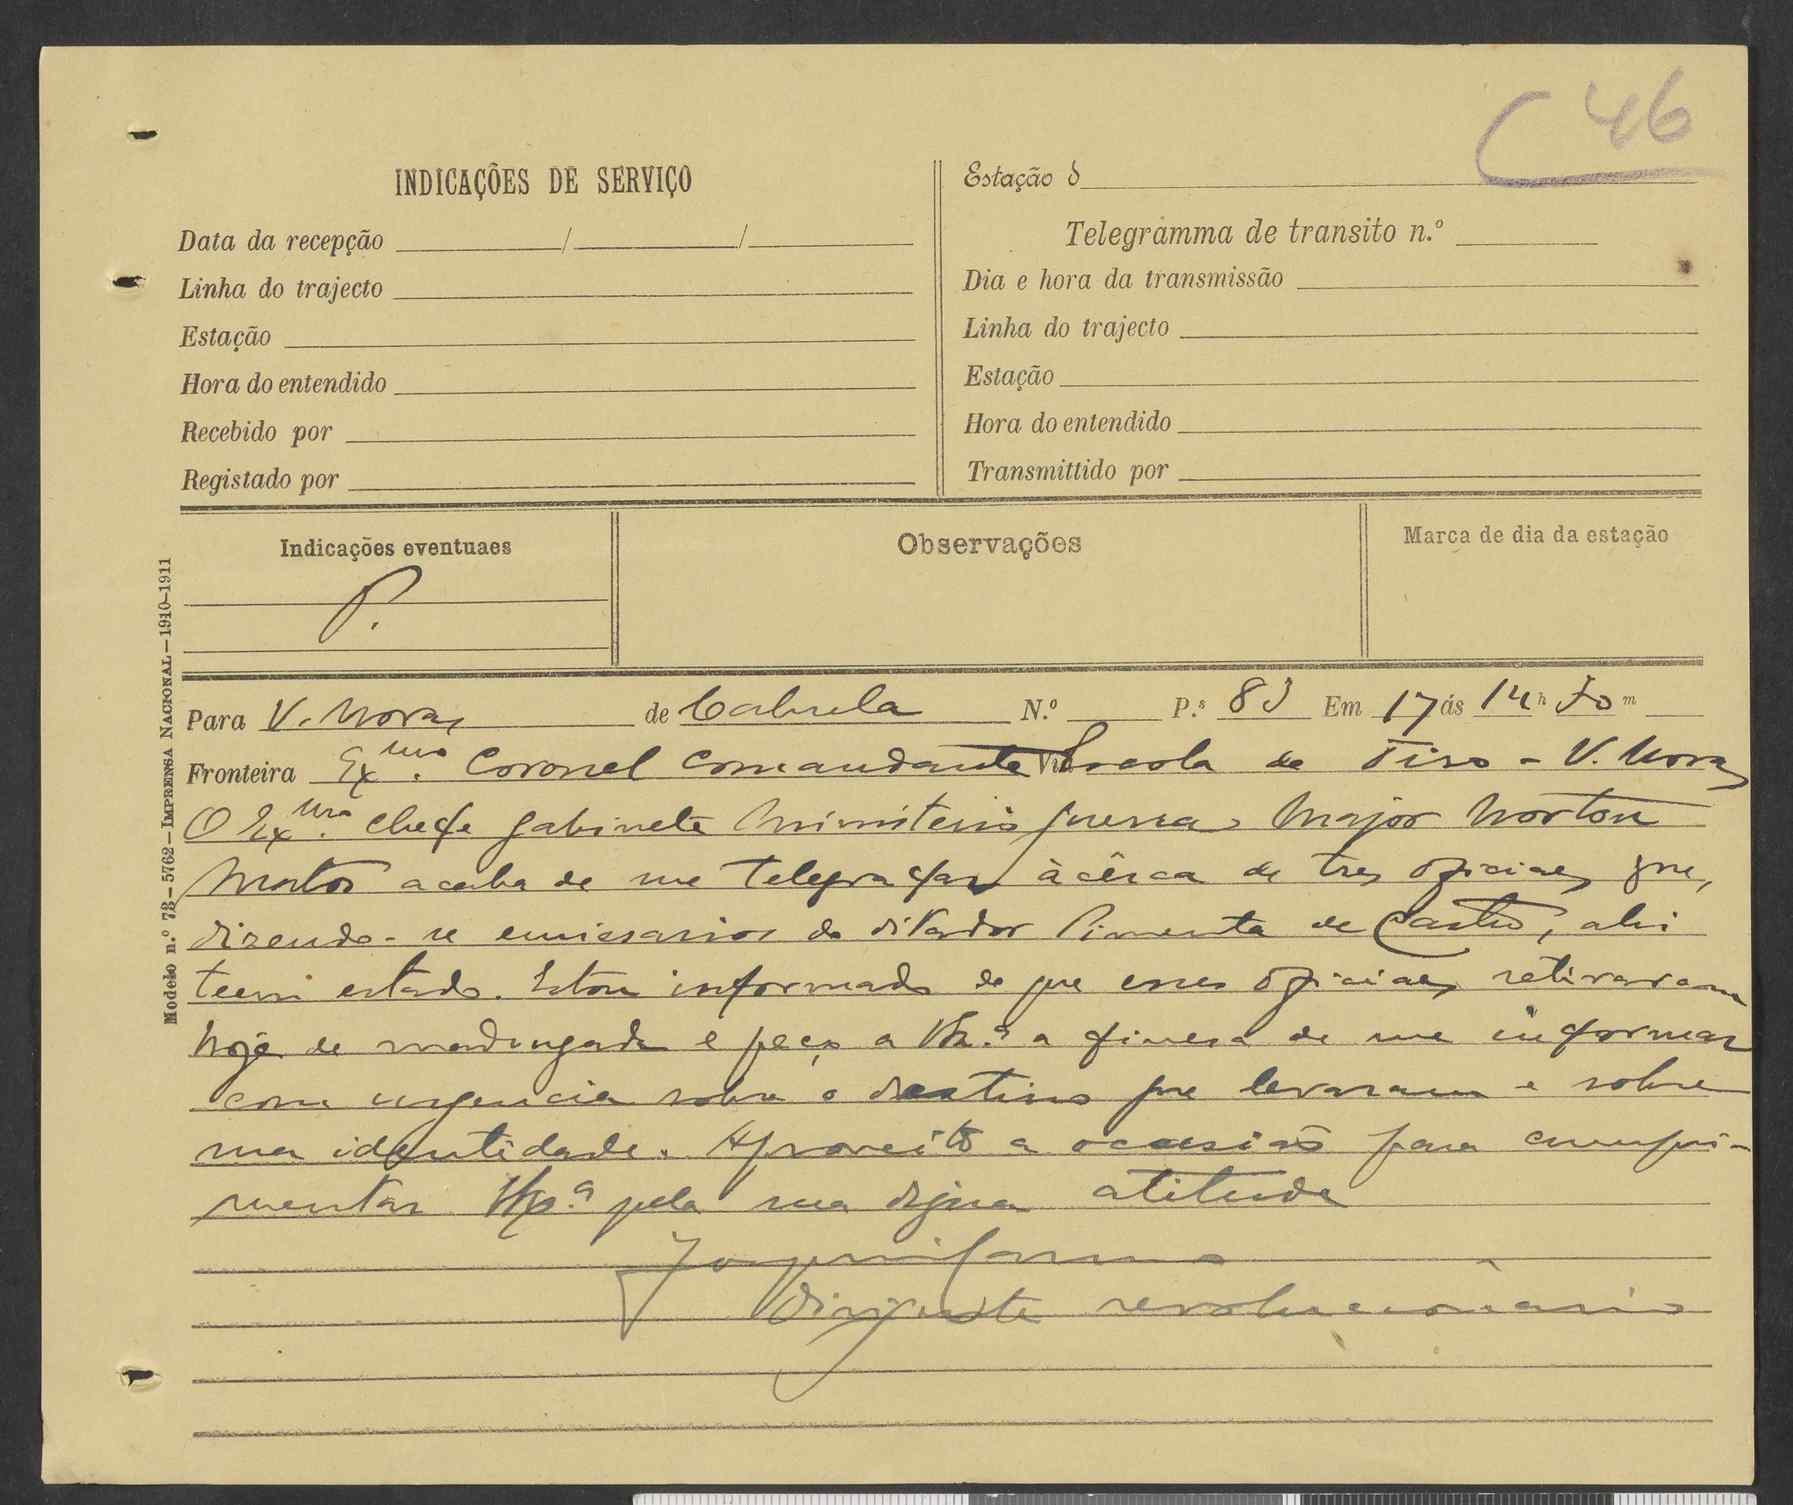 46
INDICAÇÕES DE SERVIÇO
Data da recepção / /
Linha do trajecto
Estação
Hora do entendido
Recebido por
Registado por
Estação d
Telegramma de transito n.º
Dia e hora da transmissão
Linha do trajecto
Estação
Hora do entendido
Transmittido por
Indicações eventuaes
P.
Observações
Marca de dia da estação
Modelo n.º 73—5762—IMPRENSA NACIONAL—1910-1911
Para V. Novas de Cabrela N.º P.s 83 Em 17 ás 14 h 50 m
Fronteira Exmo. Coronel Comandante Escola de Tiro - V. Novas
O Exmo. chefe gabinete Ministerio guerra Major Norton
Matos acaba de me telegrafar àcêrca de tres oficiaes que,
dizendo-se emissarios do ditador Pimenta de Castro, ahi
teem estado. Estou informado de que esses oficiaes retiraram
hoje de madrugada e peço a V. Ex.ª a fineza de me informar
com urgencia sobre o destino que levaram e sobre
sua identidade. Aproveito a ocasião para cumpri-
mentar V. Ex.ª pela sua digna atitude
Dirigente revolucionario